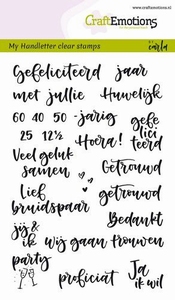 CraftEmotions
www.craftemotions.nl
My Handletter clear stamps
by carla
Gefeliciteerd jaar
met jullie Huwelijk
60 40 50 -jarig gefe
25 12½ Hoera! lici
teerd
Veel geluk
samen Getrouwd
Lief getrouwd
bruidspaar
Bedankt
jij &
ik wij gaan trouwen
party
proficiat Ja
ik wil